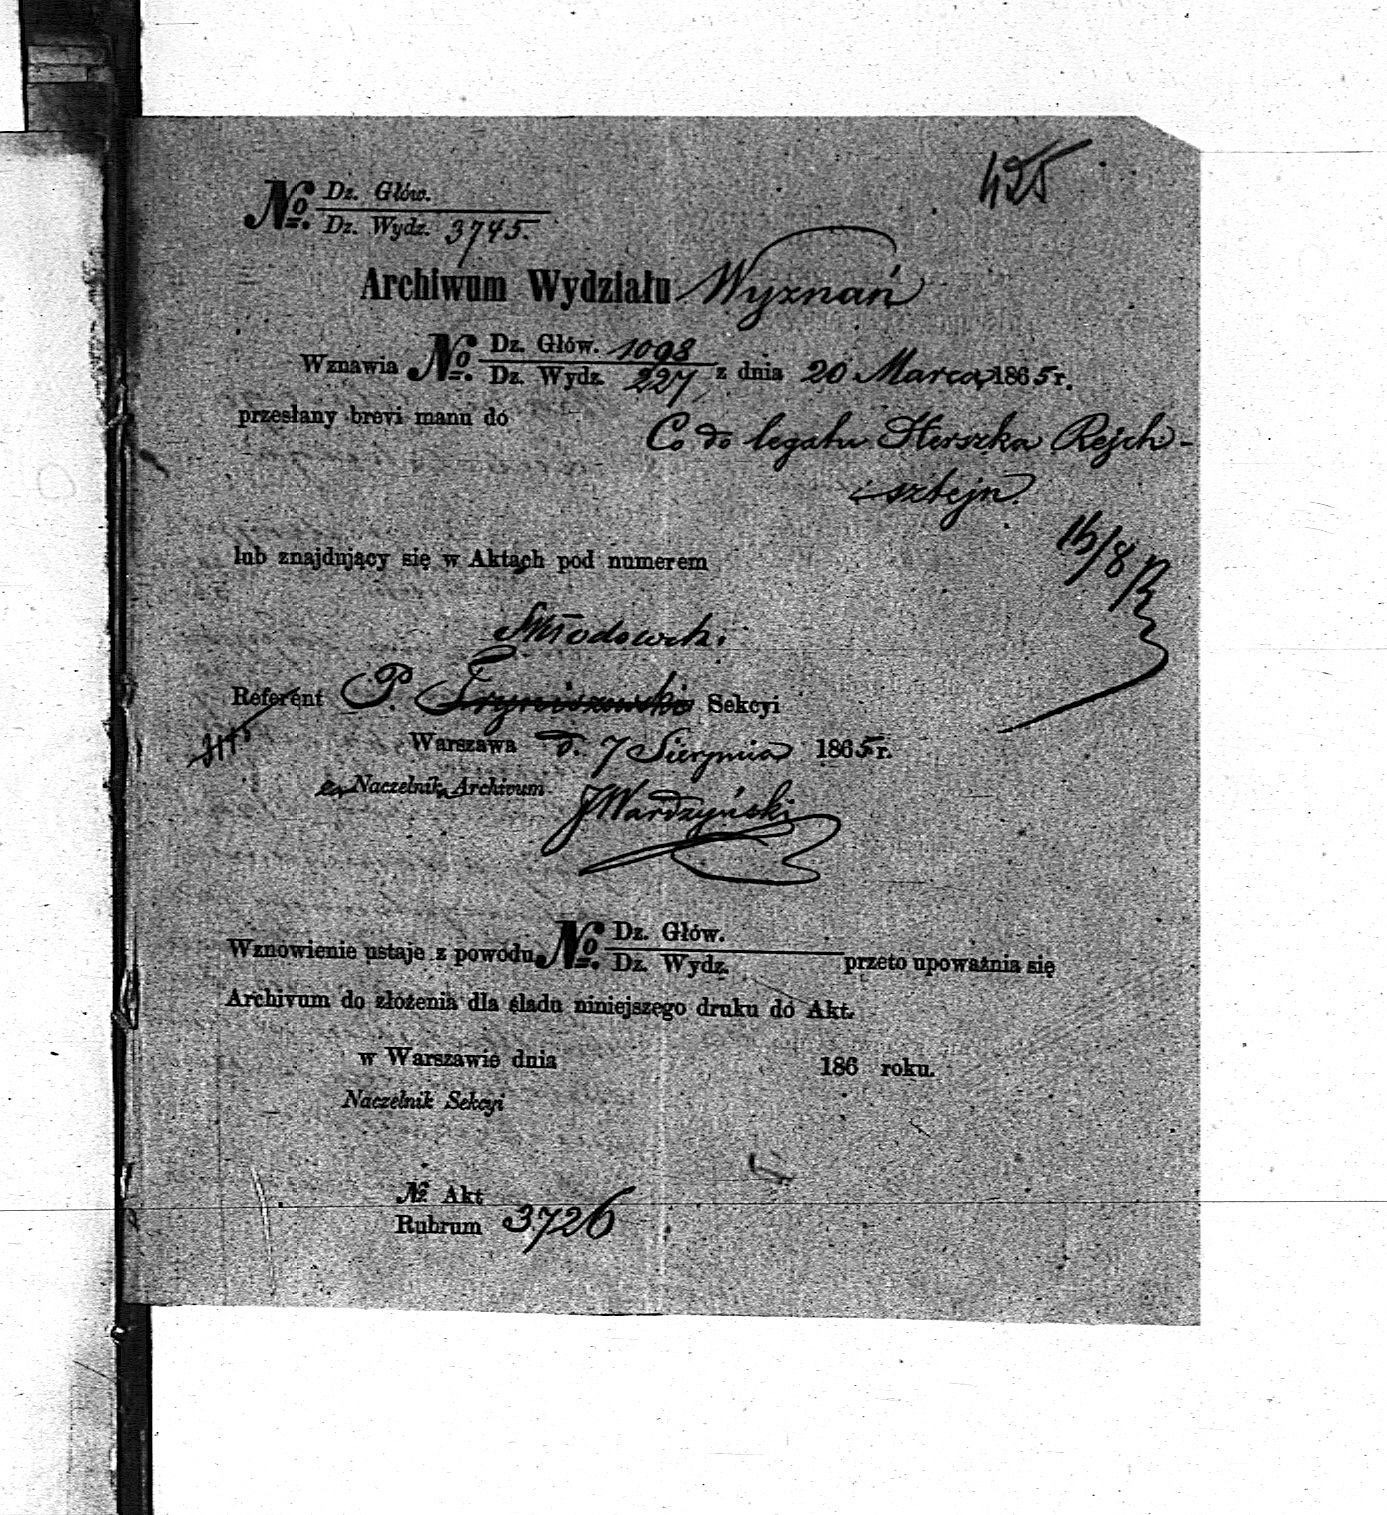 425
№ Dz. Głów.
Dz. Wydz. 3745.
Archiwum Wydziału Wyznań
Wznawia № Dz. Głów. 1098
Dz. Wydz. 227 z dnia 20 Marca 1865 r.
przesłany brevi manu do
Co do legatu Herszka Rejch-
sztejn
lub znajdujący się w Aktach pod numerem
15/8
Referent P. Sekcyi
Warszawa d. 7 Sierpnia 1865 r.
Naczelnik Archivum JWardzyński
Wznowienie ustaje z powodu № Dz. Głów.
Dz. Wydz. przeto upoważnia się
Archivum do złożenia dla śladu niniejszego druku do Akt.
w Warszawie dnia 186 roku.
Naczelnik Sekcyi
№ Akt
Rubrum 3726